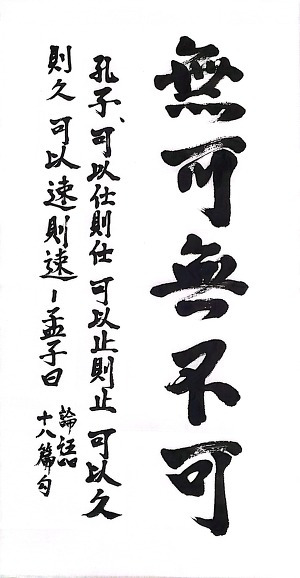 無可無不可
孔子、可以仕則仕 可以止則止 可以久
則久 可以速則速-孟子曰
論語
十八篇句